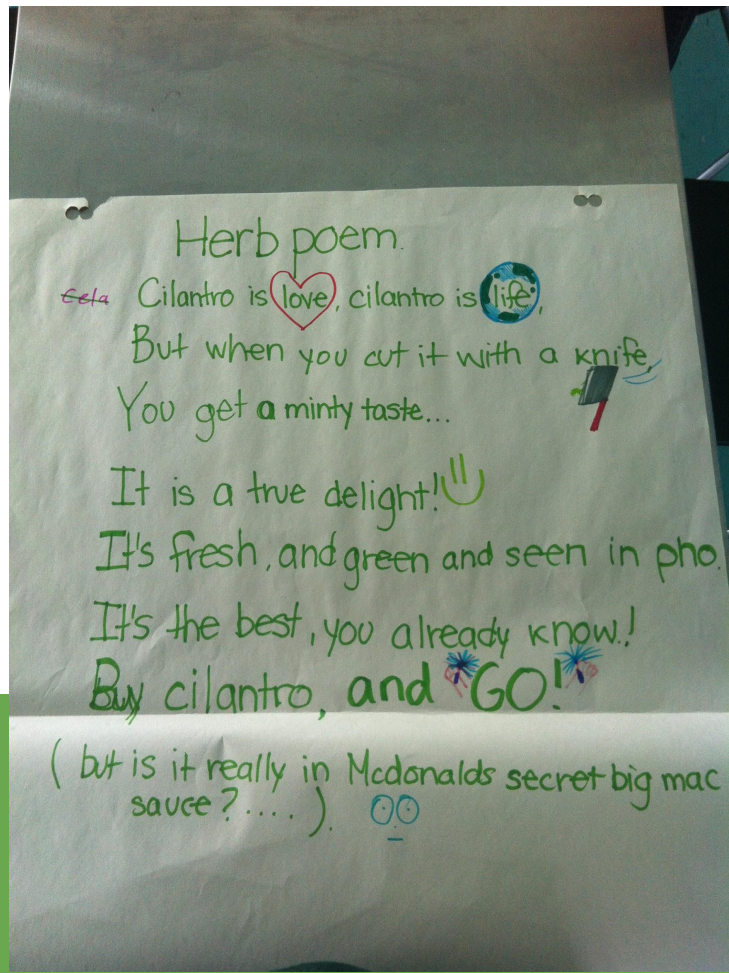 Herb poem.
Cilantro is love, cilantro is life,
But when you cut it with a knife,
You get a minty taste...
It is a true delight!
It's fresh, and green and seen in pho.
It's the best, you already know!
Buy cilantro, and GO!
( but is it really in Mcdonalds secret big mac
sauce?....).